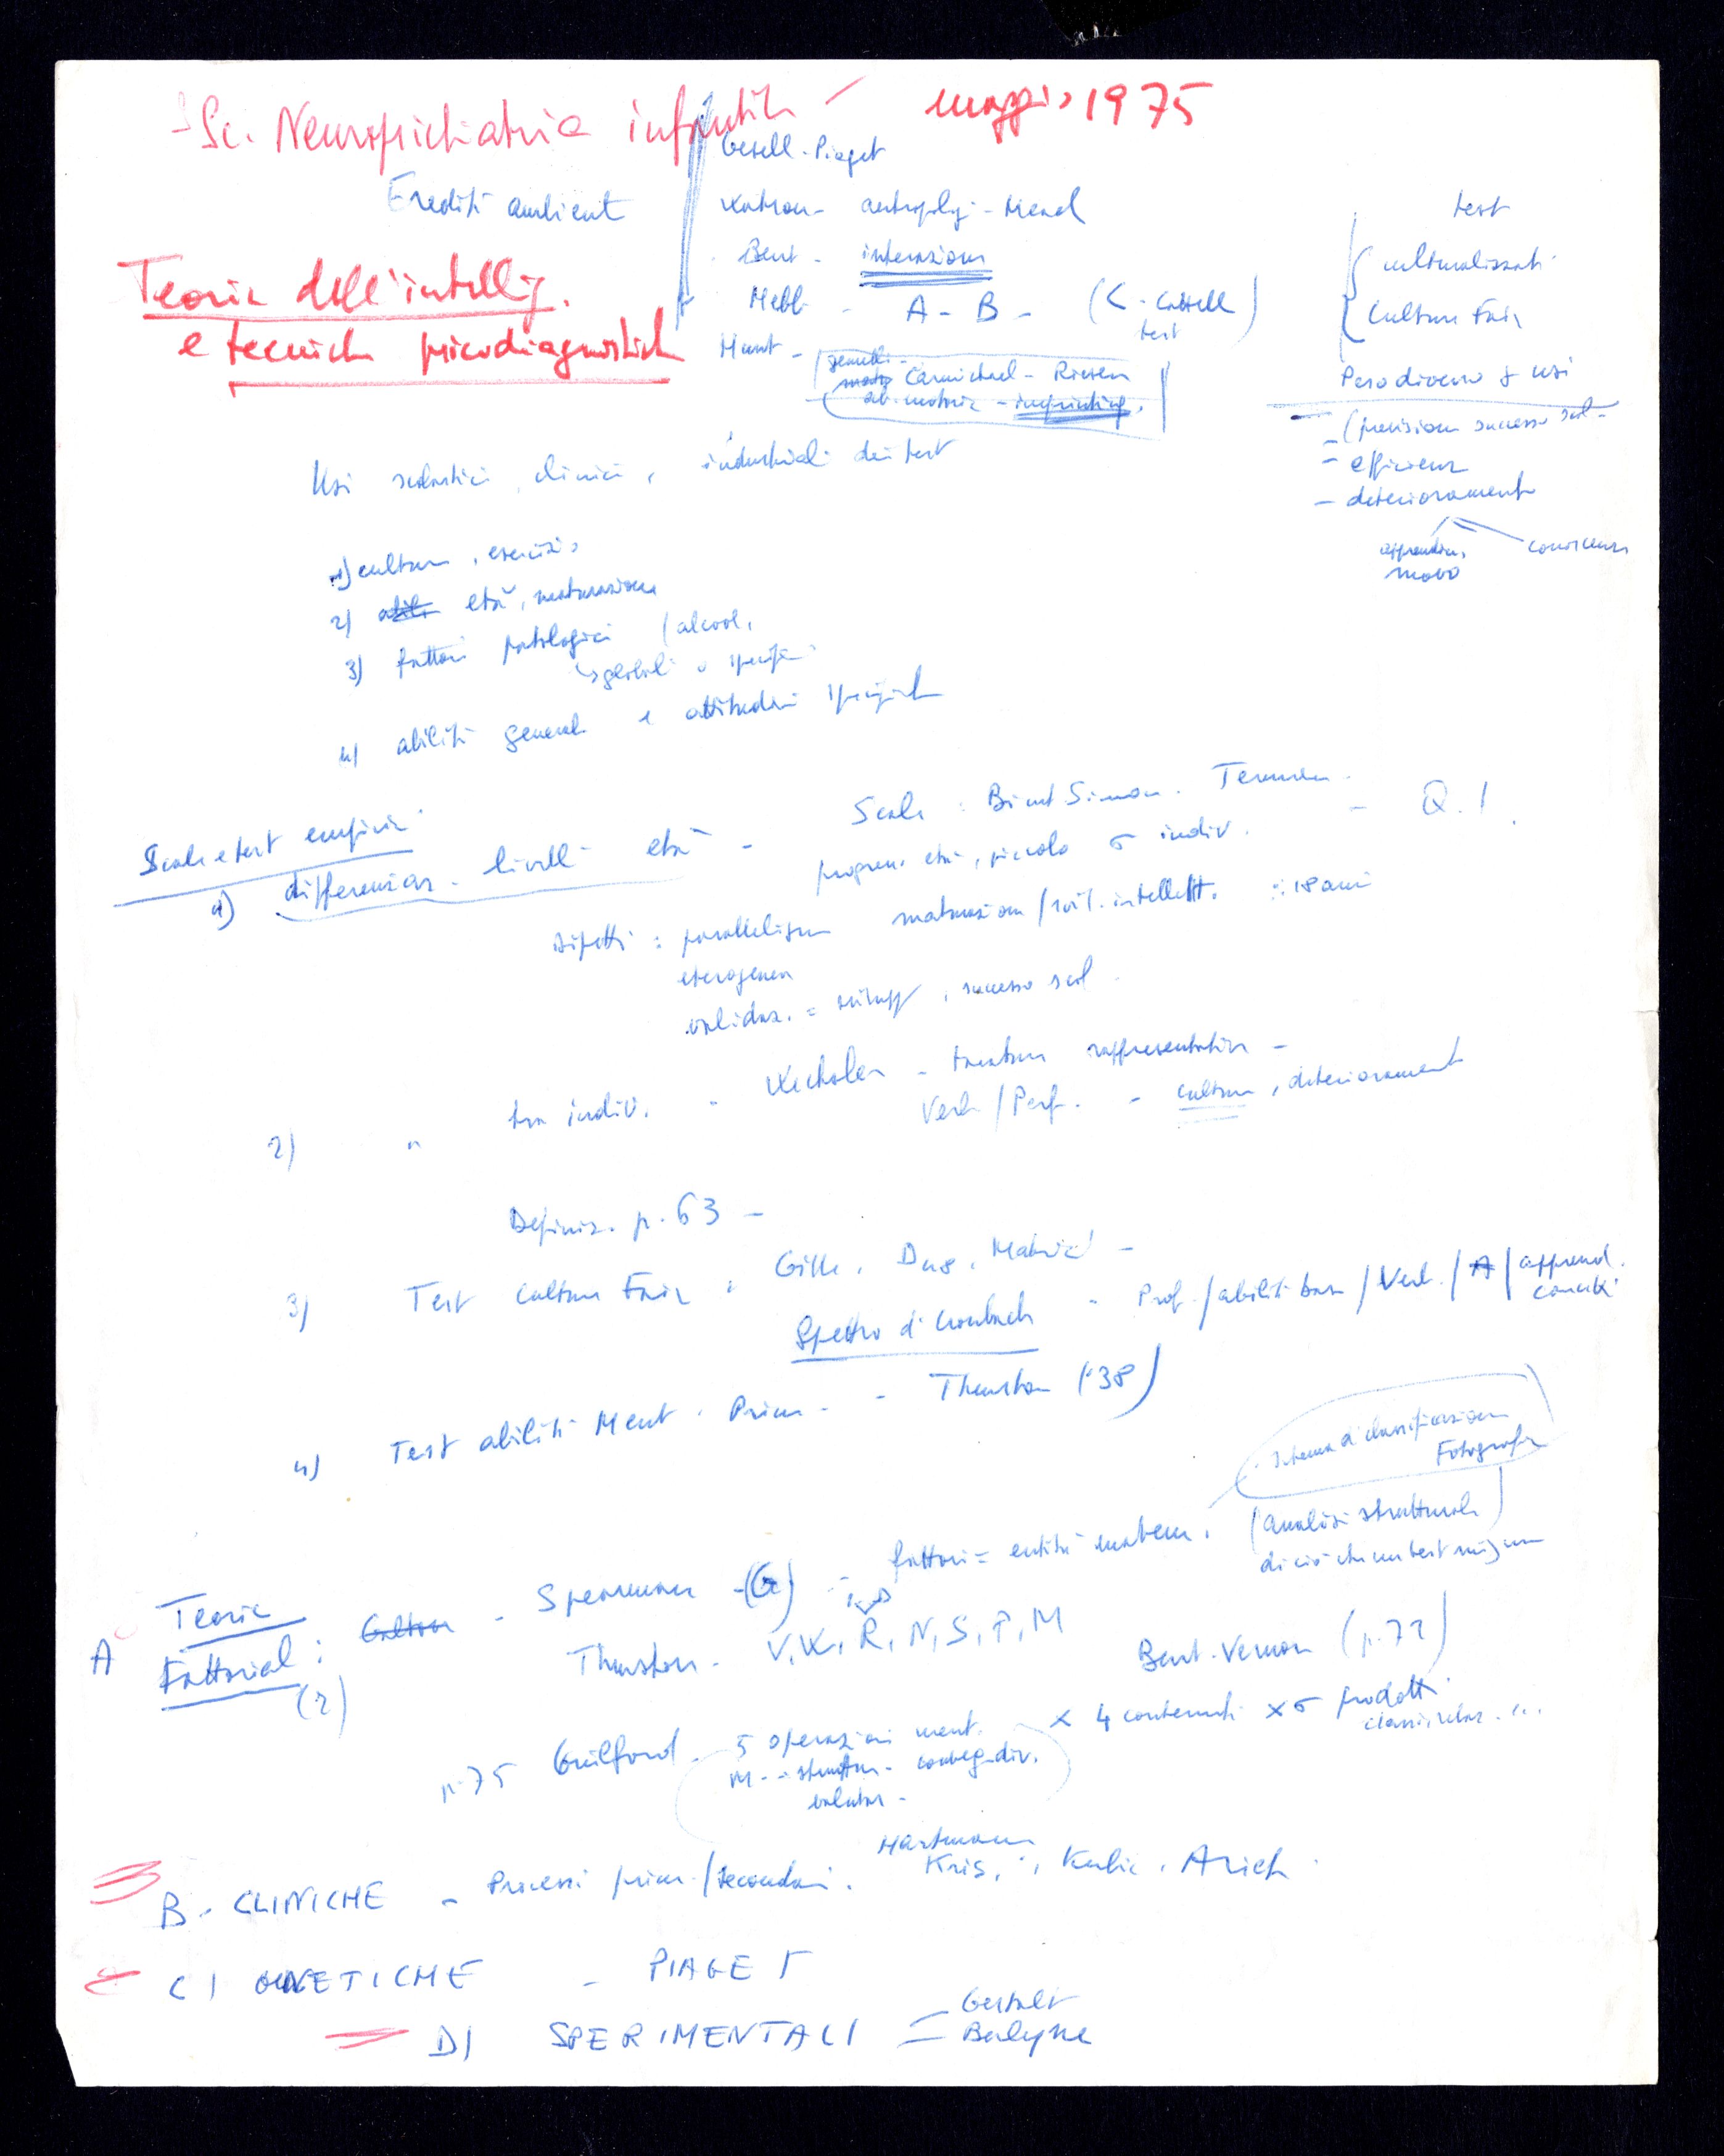 Sc. Neuropsichiatria infantile - maggio 1975
Eredità ambiente
Gesell - Piaget
Watson - antroplg - Mead
Burt - interazione
Hebb - A - B - (C - Cattell test)
Hunt - gemelli -
Carmichael - Riesen
ab. motorie - imprinting.
Teorie dell'intellig.
e tecniche psicodiagnostiche
test
culturalizzati
Culture Fair
Peso diverso x usi
- (previsione successo scol -
- efficienza
- deterioramento
apprendim. nuovo
conoscenze
Usi scolastici, clinici, industriali dei test
1) cultura, esercizio
2) abili età, maturazione
3) fattori patologici (alcool,
globali o specifici
4) abilità generale e attitudini specifiche
Scale e test empirici
1) differenziaz. livelli età -
Scale: Binet Simon. Terman - Q.I.
progress. età, piccola σ indiv.
difetti: parallelismo maturazione/svil. intellett. : 18 anni
eterogenea
validaz. = svilupp, successo scol
2) " tra indiv. - Wechsler - taratura rappresentativa -
Verb/Perf. - cultura, deterioramento
Definiz. p. 63 -
3) Test Culture Fair, Gille, D48, Matrici -
Spettro di Cronbach - Prof./abilità base/Verb./A/apprend. concetti
4) Test abilità Ment. Prim. - Thurstone ('38)
schema di classificazione
Fotografia
A Teorie Fattoriali: Galton - Spearman -(G) - fattori = entità matem. (analisi strutturale)
(2)
di ciò che un test misura
Thurstone - V, W, R, N, S, P, M
Burt - Vernon (p. 72)
p. 75 Guilford - 5 operazioni ment. x 4 contenuti x 6 prodotti
M - struttur - converg - div.
classi, relaz. ...
valutaz -
B. CLINICHE - Processi prim./secondari. Hartmann
Kris, Kubie, Arieti
C) GENETICHE - PIAGET
D) SPERIMENTALI = Gestalt
Berlyne